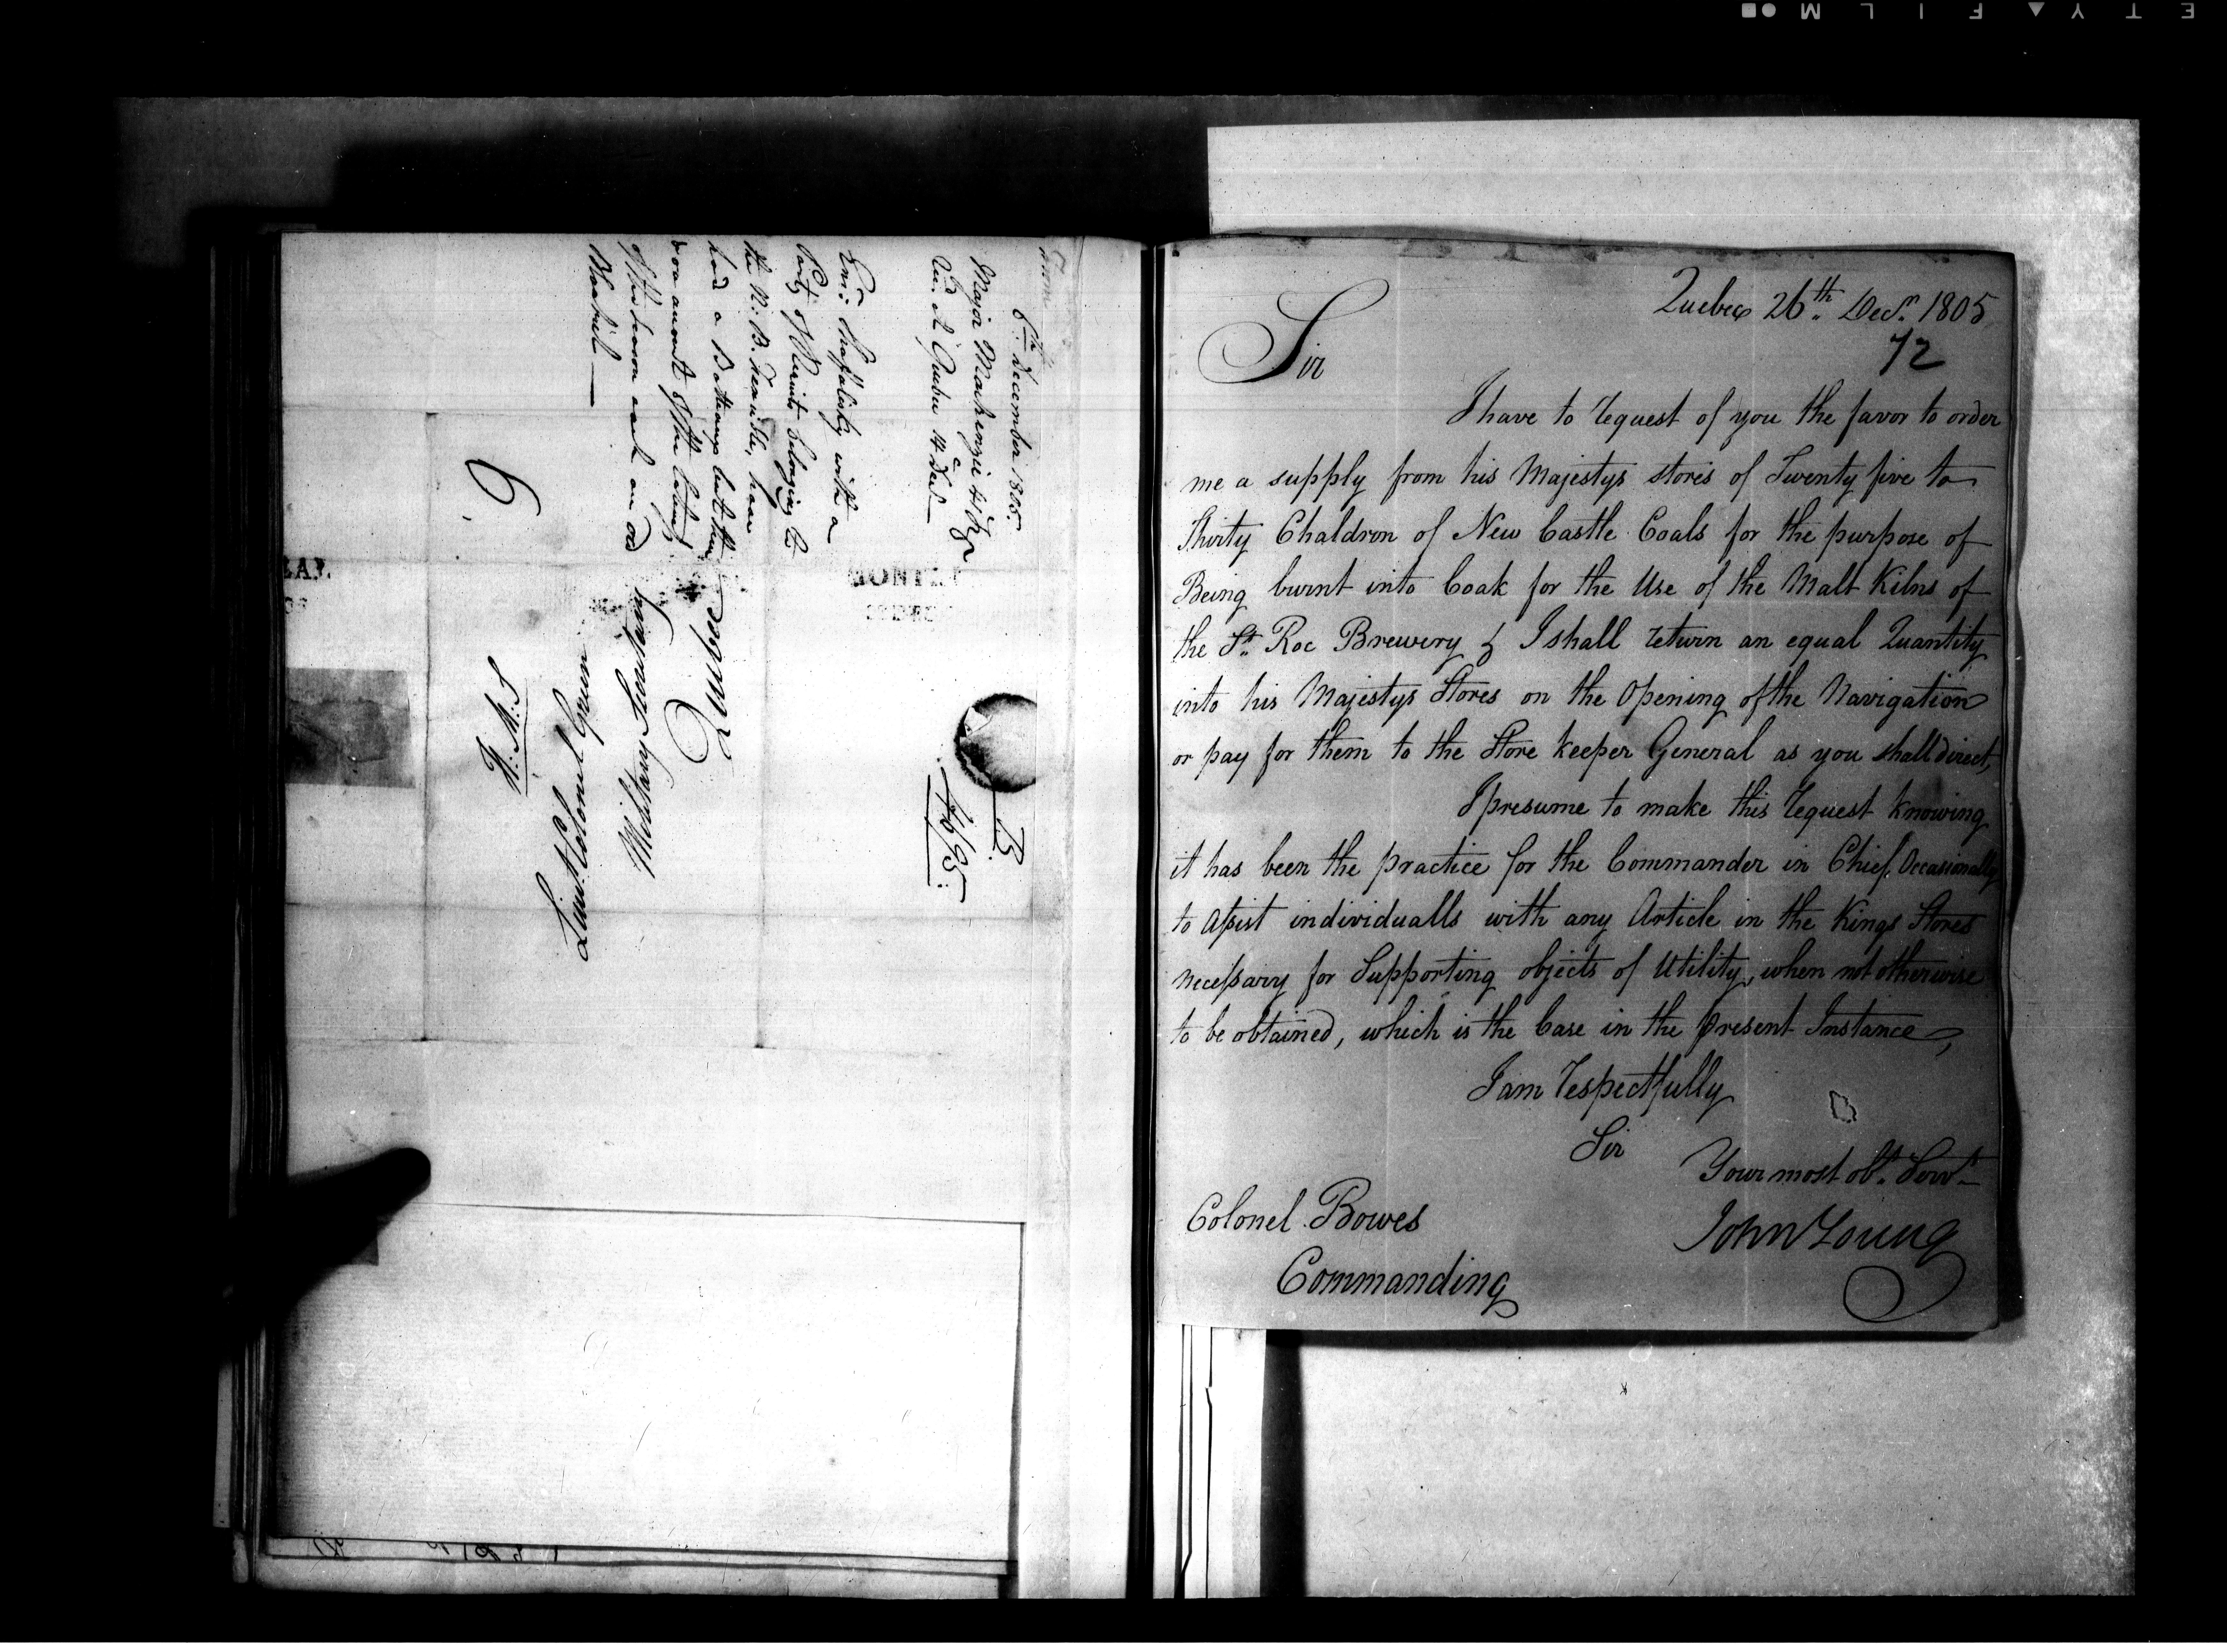 6th December 1805.
Major Mackenzie 41 Regt
Ansd at Quebec 14 Decr
Party of Recruits belonging to
the N: B. Fencibles, have
had a
on account of the
of the season
Lieut. Colonel Green
Military Secretary
Quebec
B.
46/95.
Quebec 26th Decr. 1805
72
Sir
I have to request of you the favor to order
me a supply from his Majestys stores of Twenty five to
Thirty Chaldron of New Castle Coals for the purpose of
Being burnt into Coak for the Use of the Malt Kilns of
the St. Roc Brewery & I shall return an equal Quantity
into his Majestys Stores on the Opening of the Navigation
or pay for them to the Store keeper General as you shall direct,
I presume to make this request knowing
it has been the practice for the Commander in Chief Occasionally
to assist individualls with any Article in the Kings Stores
necessary for Supporting objects of Utility, when not otherwise
to be obtained, which is the Case in the present Instance,
I am respectfully
Sir
Your most obt. Servt
John Young
Colonel Bowes
Commanding